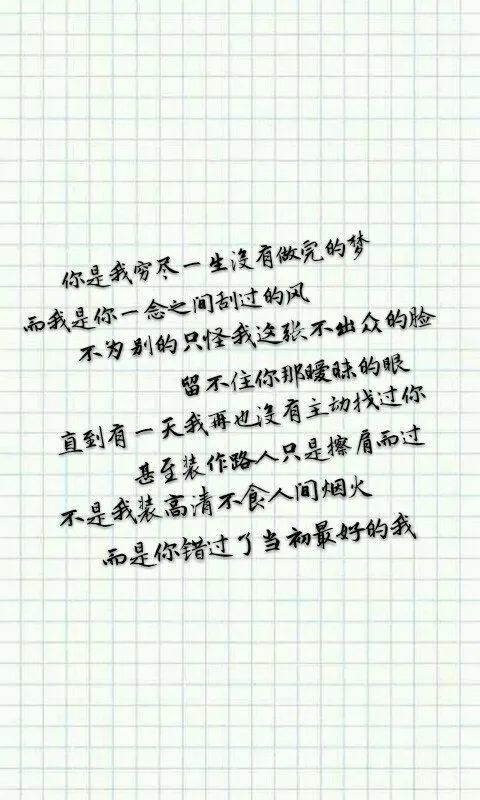 你是我穷尽一生没有做完的梦
而我是你一念之间刮过的风
不为别的只怪我这张不出众的脸
留不住你那暧昧的眼
直到有一天我再也没有主动找过你
甚至装作路人只是擦肩而过
不是我装高清不食人间烟火
而是你错过了当初最好的我